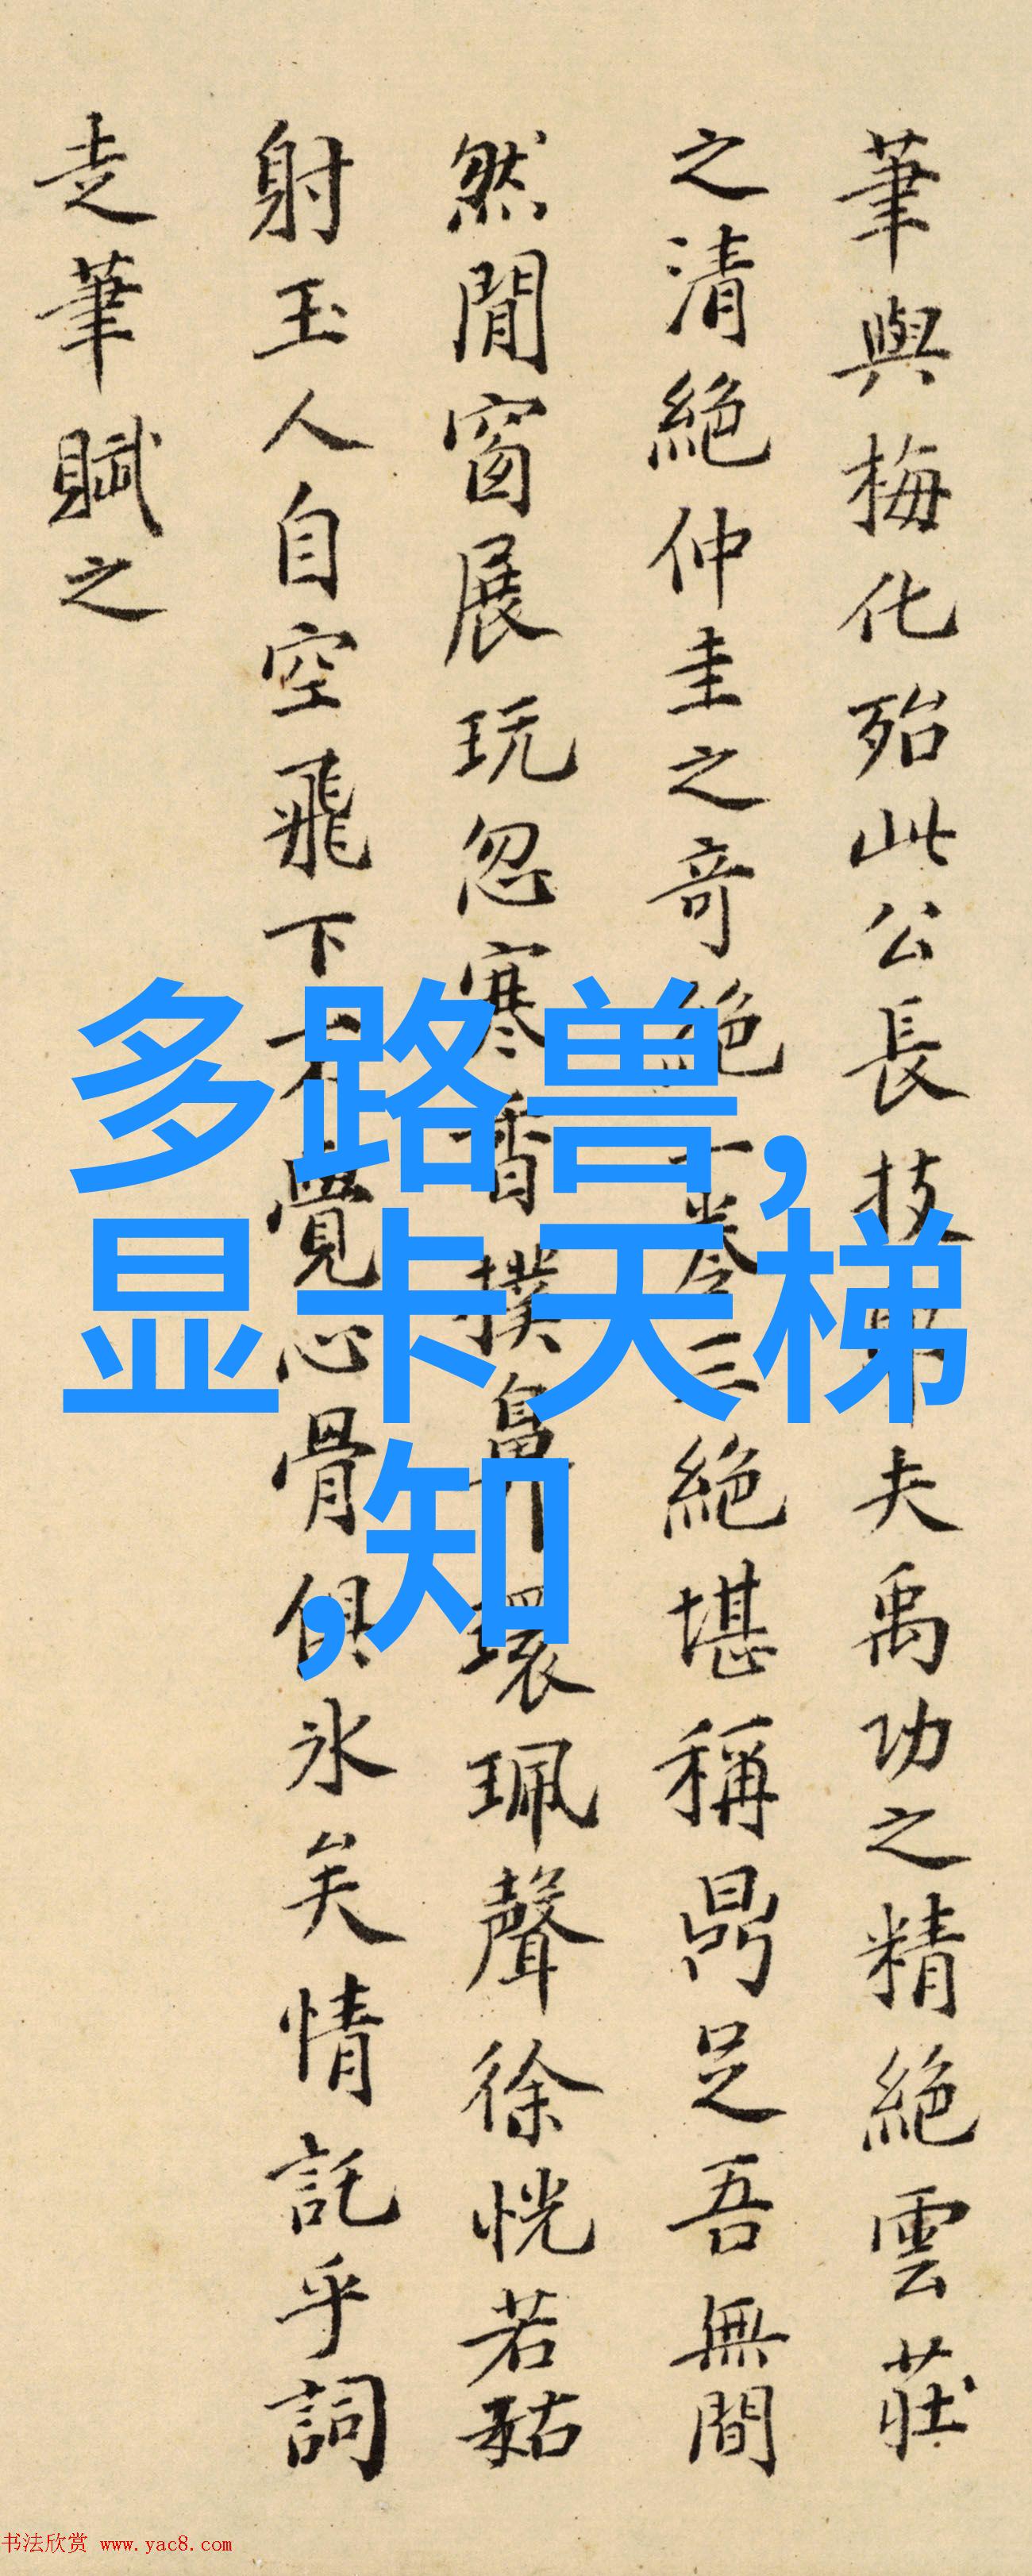 筆與梅化殆此公長技耶夫禹功之精絕雲莊
之清絕仲圭之奇絕一卷今三絕堪稱鼎足吾無間
然閒窗展玩忽寒香撲鼻環珮聲徐恍若藐姑
射玉人自空飛下不覺心骨俱氷矣情託乎詞
走筆賦之
多路兽,
显卡天梯
,知
书法欣赏 www.yac8.com